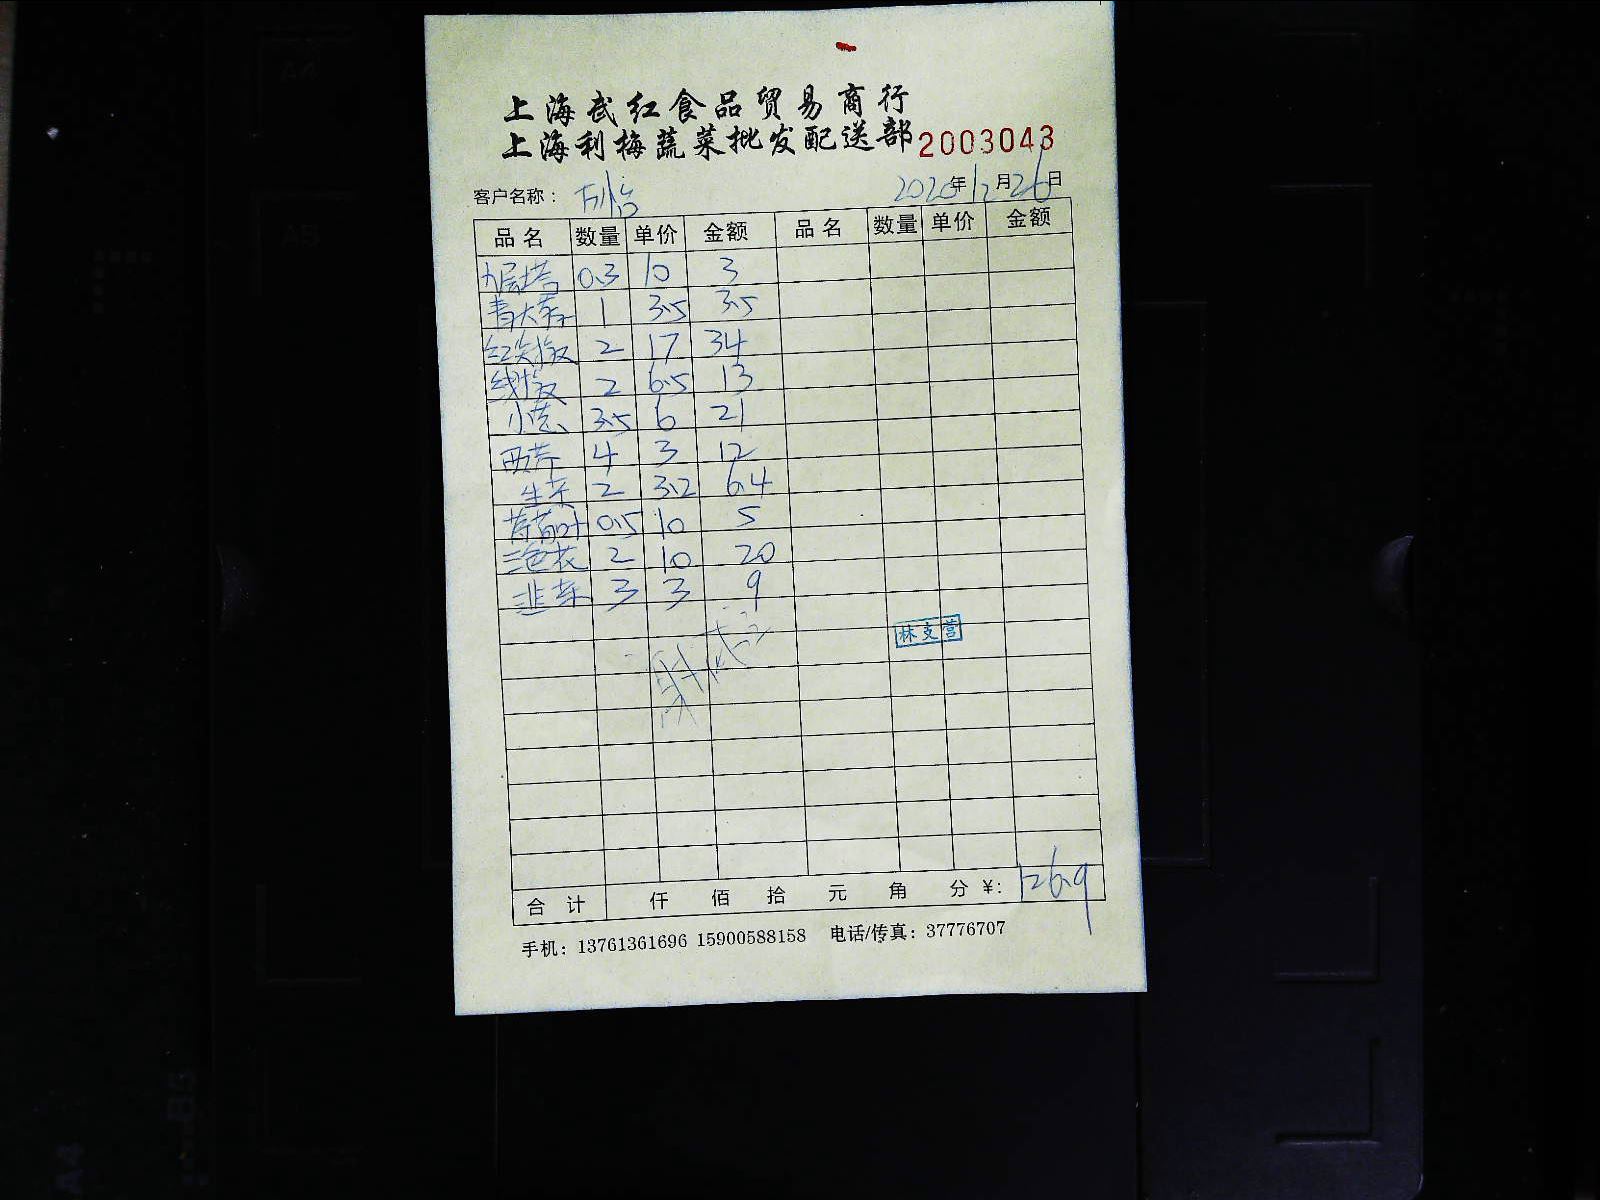 上海武红食品贸易商行
上海利梅蔬菜批发配送部 2003043
客户名称： 2020年12月26日
品名 数量 单价 金额 品名 数量 单价 金额
九层塔 0.3 10 3
青大蒜 1 3.5 3.5
红尖椒 2 17 34
线椒 2 6.5 13
小葱 3.5 6 21
西芹 4 3 12
生菜 2 3.2 6.4
薄荷叶 0.5 10 5
三色花 2 10 20
韭菜 3 3 9
林支营
合计 仟 佰 拾 元 角 分 ¥: 126.9
手机：13761361696 15900588158 电话/传真：37776707